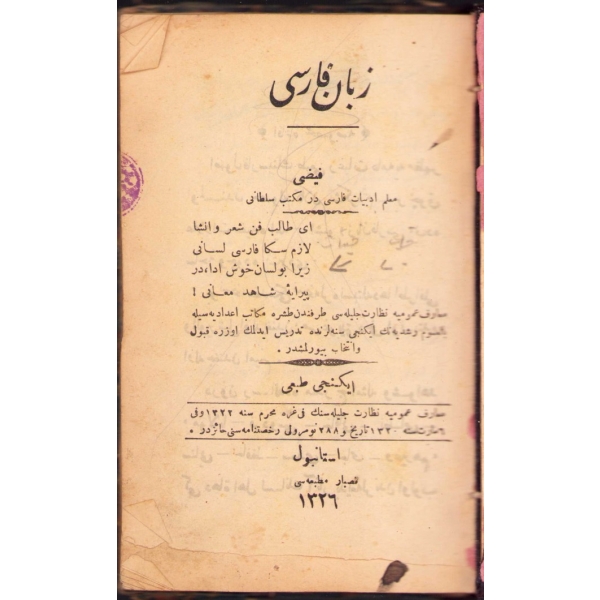 زبان فارسی
فیضی
معلم ادبیات فارسی در مکتب سلطانی
ای طالب فن شعر و انشا
لازم سکا فارسی لسانی
زیرا بو لسان خوش ادا، در
پیرایهٔ شاهد معانی !
معارف عمومیه نظارت جلیله سی طرفندن طشره مکاتب اعدادیه سیله
رشدیه نك ایکنجی سنه لرنده تدریس ایدلمك اوزره قبول
و انتخاب بیورلمشدر .
ایکنجی طبعی
معارف عمومیه نظارت جلیله سنك فی غره محرم سنه ١٣٢٢ وفی
تاریخ و ٢٨٨ نومرولی رخصتنامه سنی حائزدر .
استانبول
قصبار مطبعه سی
١٣٢٦